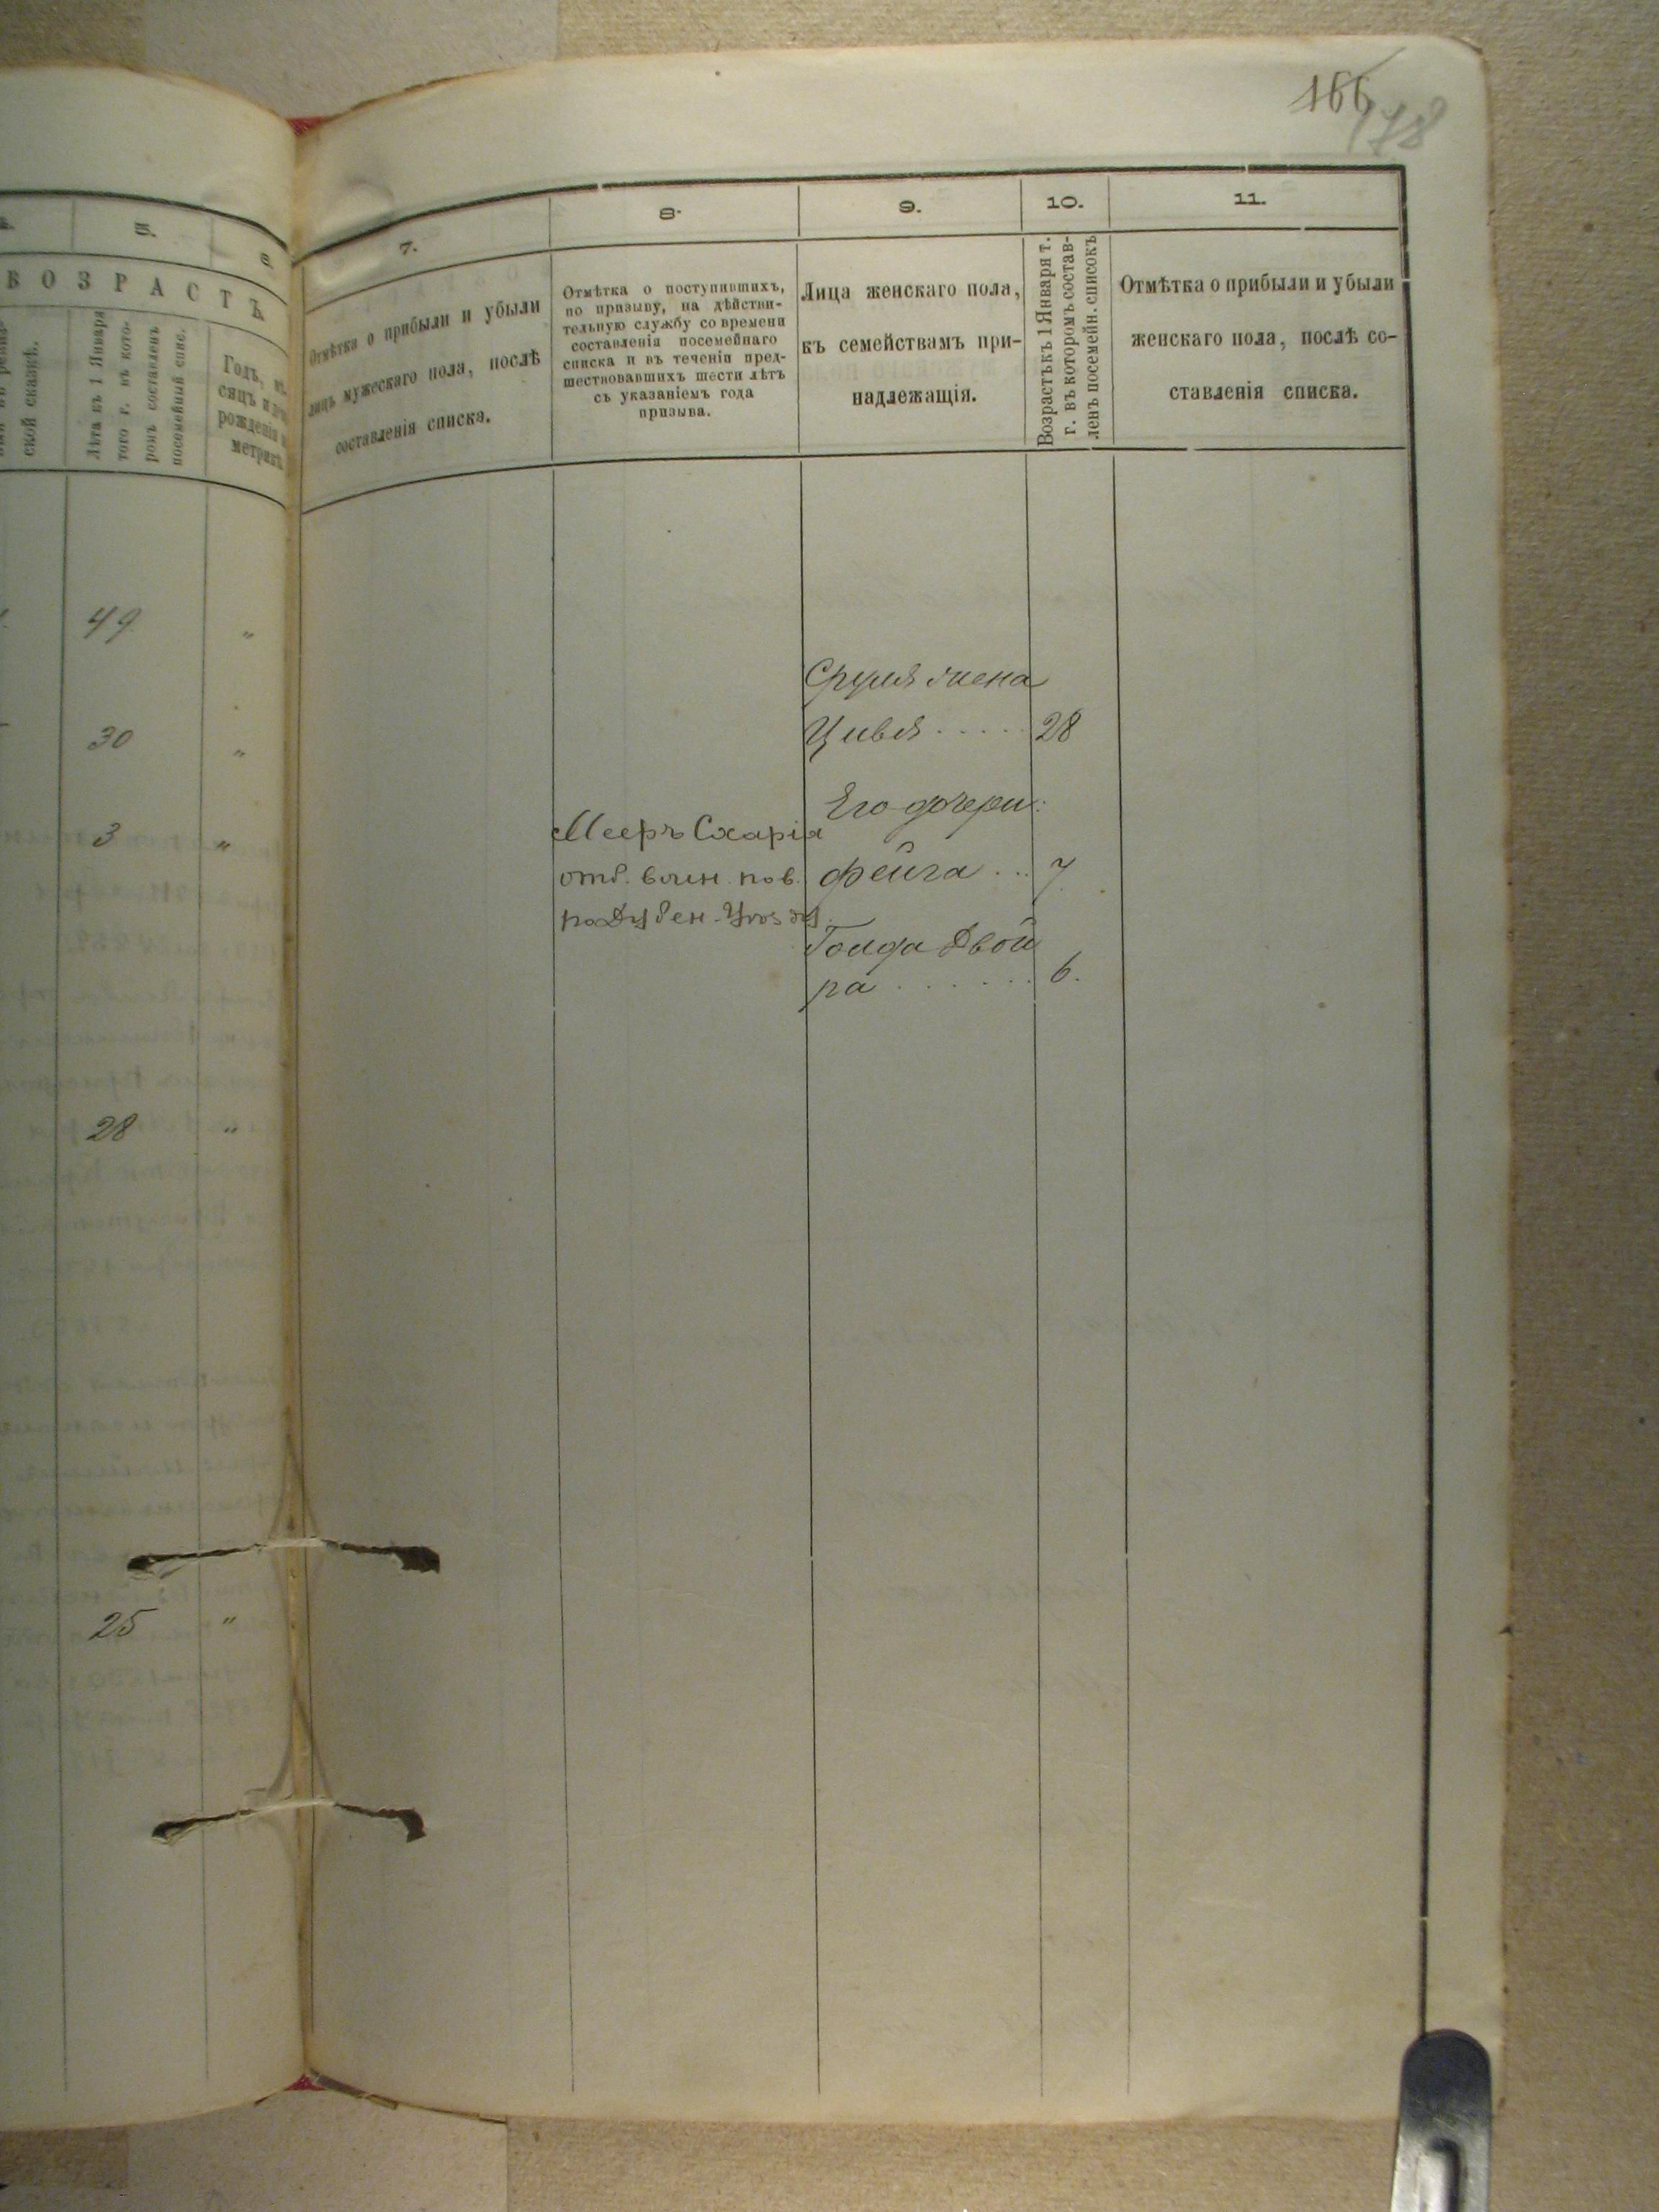 166
178
5.
6.
ВОЗРАСТЪ
ской сказкѣ.
Лѣта къ 1 Января
того г. въ кото-
ромъ составленъ
посемейный спис.
Годъ, мѣ-
сяцъ и
рожденія
метрик
49 "
30 "
3 "
28 "
25 "
7.
8.
9.
10.
11.
Отмѣтка о прибыли и убыли
лицъ мужескаго пола, послѣ
составленія списка.
Отмѣтка о поступившихъ,
по призыву, на дѣйстви-
тельную службу со времени
составленія посемейнаго
списка и въ теченіи пред-
шествовавшихъ шести лѣтъ
съ указаніемъ года
призыва.
Лица женскаго пола,
къ семействамъ при-
надлежащія.
Возрастъ къ 1 Января т.
г. въ которомъ состав-
ленъ посемейн. списокъ
Отмѣтка о прибыли и убыли
женскаго пола, послѣ со-
ставленія списка.
Сруля жена
Цивья ..... 28
Его дочери:
Мееръ Схарія
Фейга ... 7.
отб. воин. пов.
по Дубен. Уѣзду.
Голда Двой
ра ....... 6.